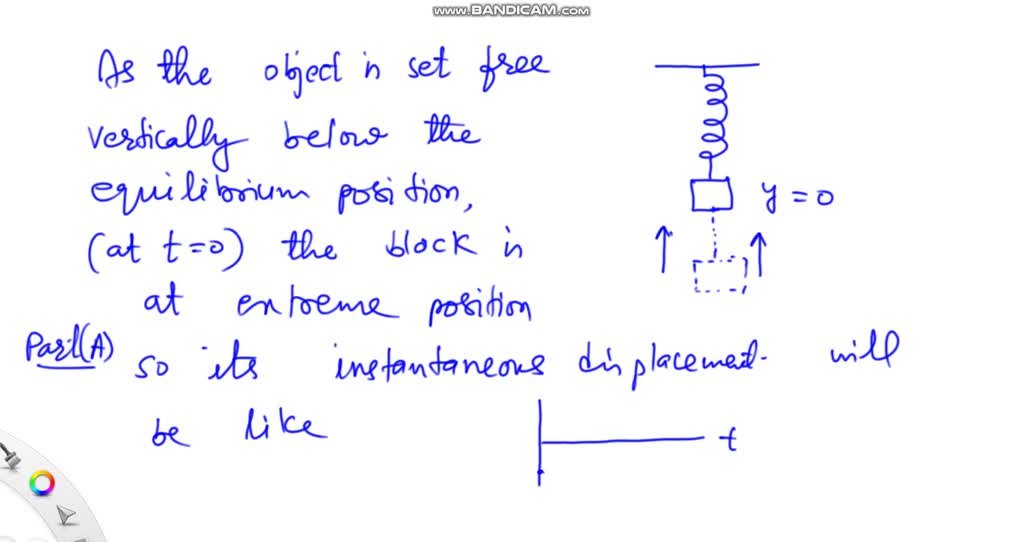 www.BANDICAM.com
As the object is set free
vertically below the
equilibrium position,
y = 0
(at t=0) the block is
at extreme position
Part(A)
so its instantaneous displacement will
be like
t